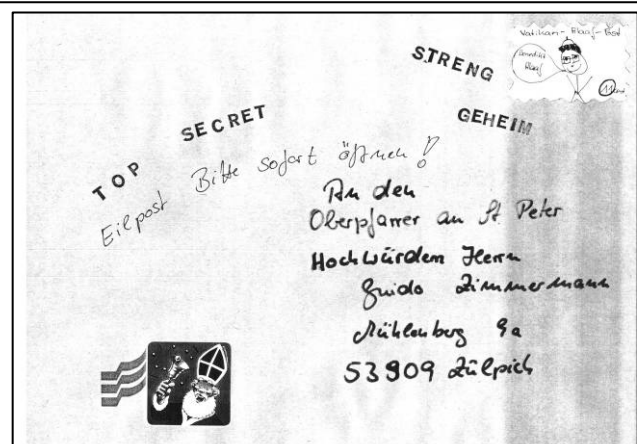 Vatikan-Blaaf-Post
Blaaf
11
STRENG
GEHEIM
TOP SECRET
Eilpost Bitte sofort öffnen!
An den
Oberpfarrer an St Peter
Hochwürden Herrn
Guido Zimmermann
Mühlenberg 9a
53909 Zülpich